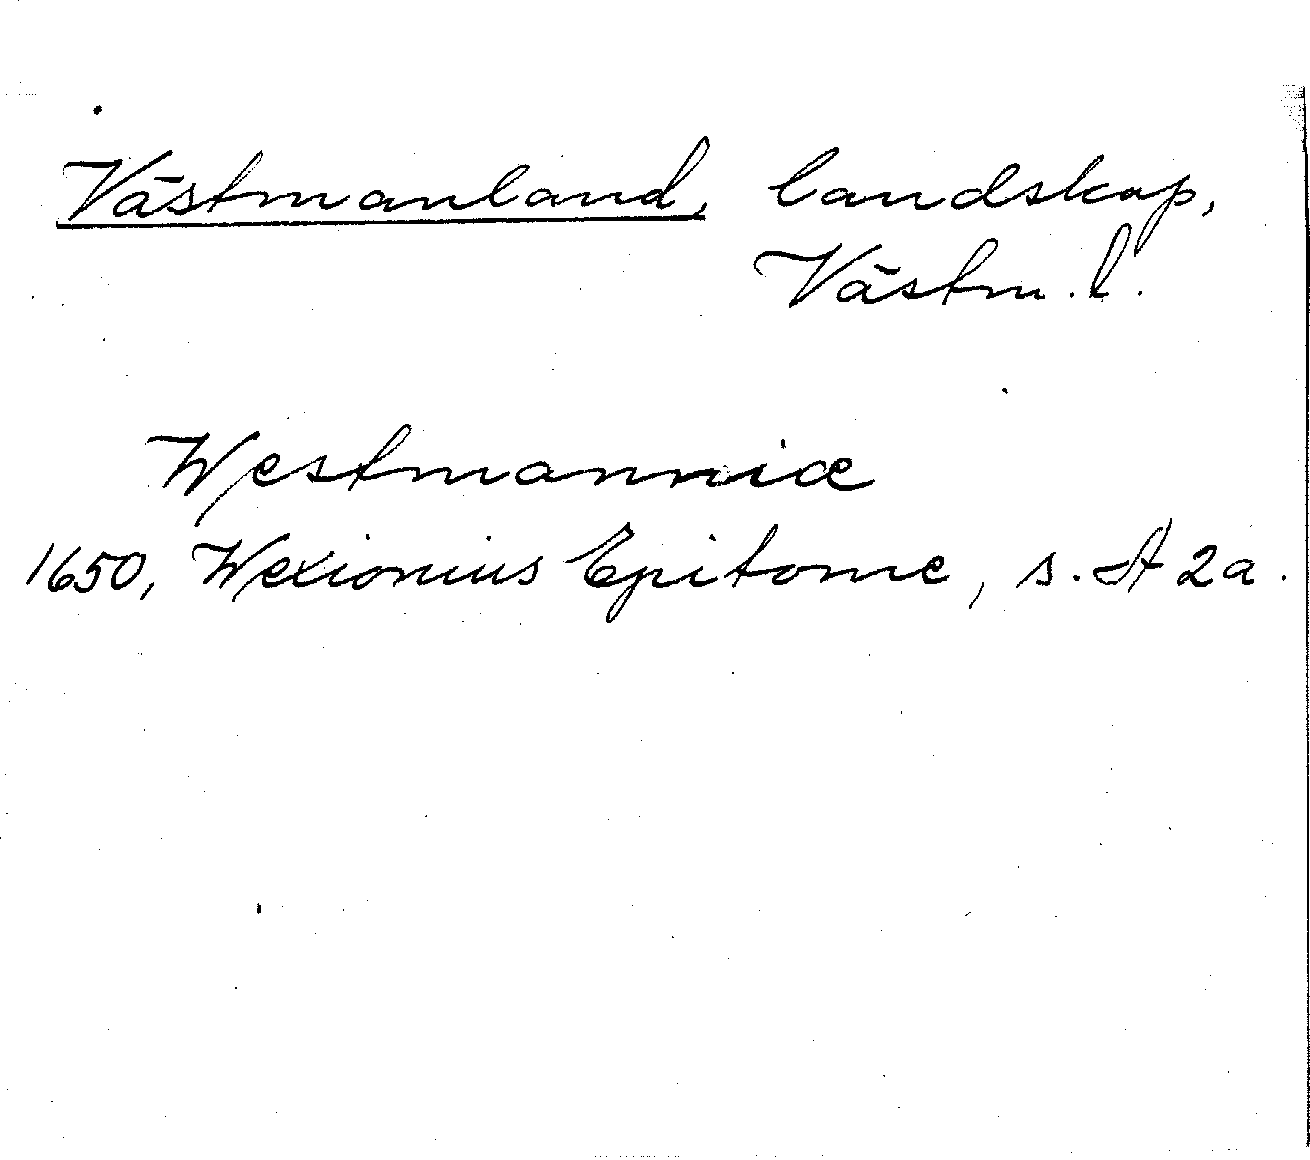 Västmanland, landskap,
Västm. l.
Westmanniæ
1650, Wexionius Epitome, s. A 2a.